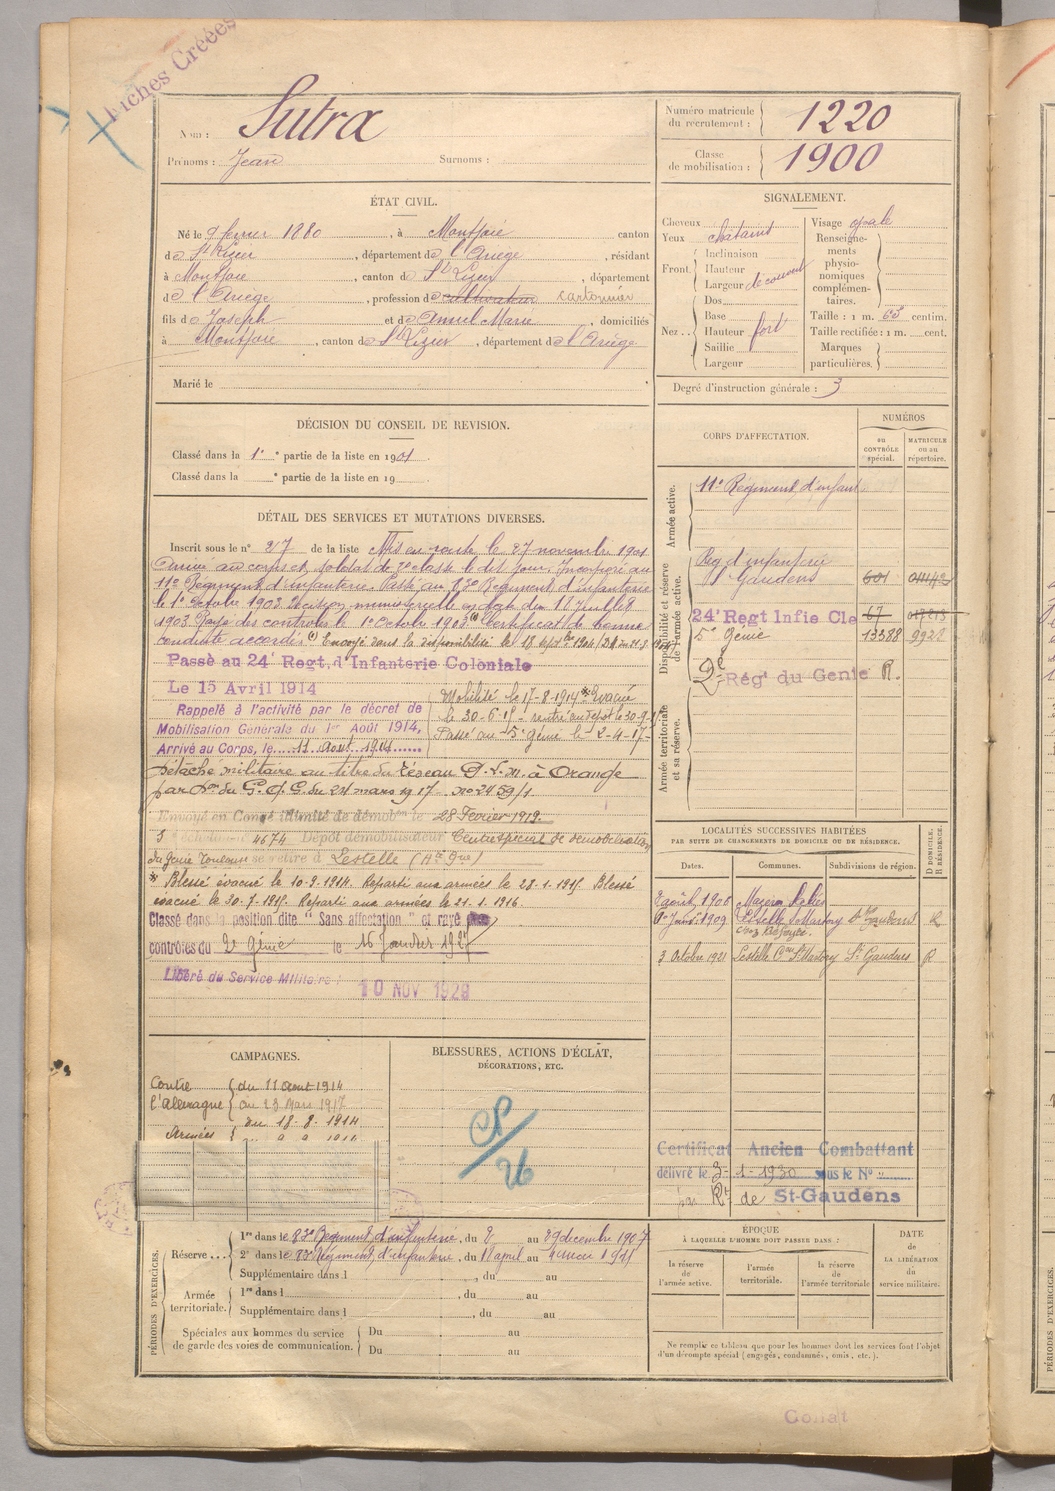 Fiches Créées
Nom : Sutra
Prénoms : Jean Surnoms :
Numéro matricule du recrutement : 1220
Classe de mobilisation : 1900
ÉTAT CIVIL.
Né le 9 février 1880, à Montjoie canton
de St Lizier, département de l'Ariège, résidant
à Montjoie, canton de St Lizier, département
de l'Ariège, profession de cultivateur cartonnier
fils de Joseph et de Amiel Marie, domiciliés
à Montjoie, canton de St Lizier, département de l'Ariège
Marié le
SIGNALEMENT.
Cheveux
Yeux châtains
Front
Inclinaison
Hauteur
Largeur découvert
Nez
Dos
Base
Hauteur fort
Saillie
Largeur
Visage ovale
Renseignements physionomiques complémentaires.
Taille : 1 m. 63 centim.
Taille rectifiée : 1 m. cent.
Marques particulières.
Degré d'instruction générale : 3
DÉCISION DU CONSEIL DE REVISION.
Classé dans la 1e partie de la liste en 1901.
Classé dans la e partie de la liste en 19
DÉTAIL DES SERVICES ET MUTATIONS DIVERSES.
Inscrit sous le n° 27 de la liste Mis en route le 27 novembre 1901
Arrivé au corps et soldat de 2e classe le dit jour. Incorporé au
11e Régiment d'infanterie. Passé au 83e Régiment d'infanterie
le 1er Octobre 1902. Décision ministérielle en date du 18 Juillet
1903. Rayé des contrôles le 1er Octobre 1903 (1) Certificat de bonne
conduite accordé. (1) Envoyé dans la disponibilité le 18 7bre 1904
Passé au 24e Regt. d'Infanterie Coloniale
Le 15 Avril 1914
Rappelé à l'activité par le décret de
Mobilisation Générale du 1er Août 1914,
Arrivé au Corps, le 11 août 1914
Mobilisé le 17-8-1914 * Evacué
le 30-6-15 - rentré au dépôt le 30-9-15
Passé au 5e génie le 2-4-17
Détaché militaire au titre du réseau P.L.M. à Orange
par du G.Q.G. du 24 mars 1917. no 2459/1
Envoyé en Congé illimité de démobon le 28 Fevrier 1919.
4674 Dépôt démobilisateur Centre spécial de démobilisation
du Génie Toulouse se retire à Lestelle (Hte Gne)
* Blessé évacué le 10-9-1914. Reparti aux armées le 28-1-1915. Blessé
évacué le 30-7-1915. Reparti aux armées le 21-1-1916.
Classé dans la position dite "Sans affectation" et rayé des
contrôles du 2e Génie le 16 Janvier 1927
Libéré du Service Militaire : 10 NOV 1929
CORPS D'AFFECTATION.
NUMÉROS
au CONTRÔLE spécial.
MATRICULE ou au répertoire.
Armée active.
11e Régiment d'infant
Disponibilité et réserve de l'armée active.
Reg d'infanterie
St Gaudens 601 01142
24e Regt Infie Cle 67
5e Génie 13388 9922
2e Rég' du Genie R.
Armée territoriale et sa réserve.
LOCALITÉS SUCCESSIVES HABITÉES
PAR SUITE DE CHANGEMENTS DE DOMICILE OU DE RÉSIDENCE.
Dates. Communes. Subdivisions de région. D DOMICILE. R RÉSIDENCE.
août 1906 Mazères Salies
1909 Lestelle St Martory St Gaudens R
3 Octobre 1921 Lestelle St Martory St Gaudens R
CAMPAGNES.
Contre l'Allemagne
du 11 août 1914
au 23 Mars 1917
Armées
du 18-8-1914
BLESSURES, ACTIONS D'ÉCLAT,
DÉCORATIONS, ETC.
Certificat Ancien Combattant
délivré le 3-1-1930 sous le N°
par Rt de St-Gaudens
PÉRIODES D'EXERCICES.
Réserve...
1re dans le 83e Régiment d'infanterie, du 2 au 29 décembre 1907
2e dans le 83e Régiment d'infanterie, du 18 avril au 4 mai 1911
Supplémentaire dans l , du au
Armée territoriale.
1re dans l , du au
Supplémentaire dans l , du au
Spéciales aux hommes du service de garde des voies de communication.
Du au
Du au
ÉPOQUE
À LAQUELLE L'HOMME DOIT PASSER DANS :
la réserve de l'armée active.
l'armée territoriale.
la réserve de l'armée territoriale
DATE de LA LIBÉRATION du service militaire.
Ne remplir ce tableau que pour les hommes dont les services font l'objet
d'un décompte spécial (engagés, condamnés, omis, etc.).